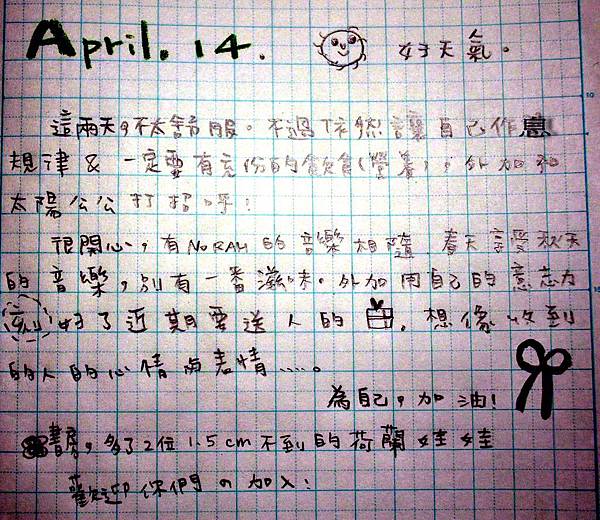 April. 14. 好天氣。
這兩天,不太舒服。不過依然讓自己作息
規律 & 一定要有充份的飲食(營養),外加和
太陽公公打招呼!
很開心,有NORAH 的音樂相隨 春天享受秋天
的音樂,別有一番滋味。外加用自己的意志力
刻好了近期要送人的 , 想像收到
的人的心情與表情......。
為自己,加油!
書房,多了2位 1.5cm 不到的荷蘭娃娃
歡迎你們の加入!